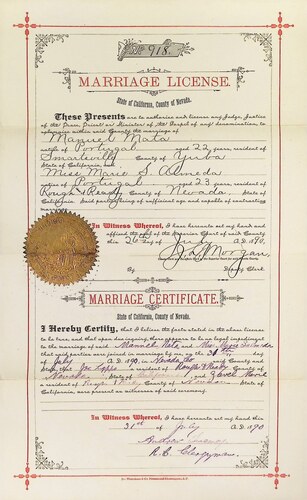 No 918.
MARRIAGE LICENSE.
State of California, County of Nevada.
These Presents are to authorize and license any Judge, Justice
of the Peace, Priest or Minister of the Gospel of any denomination, to
solemnize within said County the marriage of
Manuel Mata
native of Portugal aged 22 years, resident of
Smartsville County of Yuba
State of California, and
Miss Marie S. Almeda
native of Portugal aged 23 years, resident of
Rough & Ready County of Nevada State of
California. Said parties being of sufficient age and capable of contracting
marriage.
In Witness Whereof, I have hereunto set my hand and
affixed the seal of the Superior Court of said County
this 26th day of July A.D. 1890.
J. L. Morgan,
By
Deputy Clerk
MARRIAGE CERTIFICATE.
State of California, County of Nevada.
I Hereby Certify, that I believe the facts stated in the above license
to be true, and that upon due inquiry, there appears to be no legal impediment
to the marriage of said Manuel Mata and
that said parties were joined in marriage by me on the 31st day
of July A.D. 1890, in
that Joe a resident of Rough & Ready County of
Nevada and
a resident of County of State of
California, are present as witnesses of said ceremony.
In Witness Whereof, I have hereunto set my hand this
31st of July A.D. 1890
R. C. Clergyman